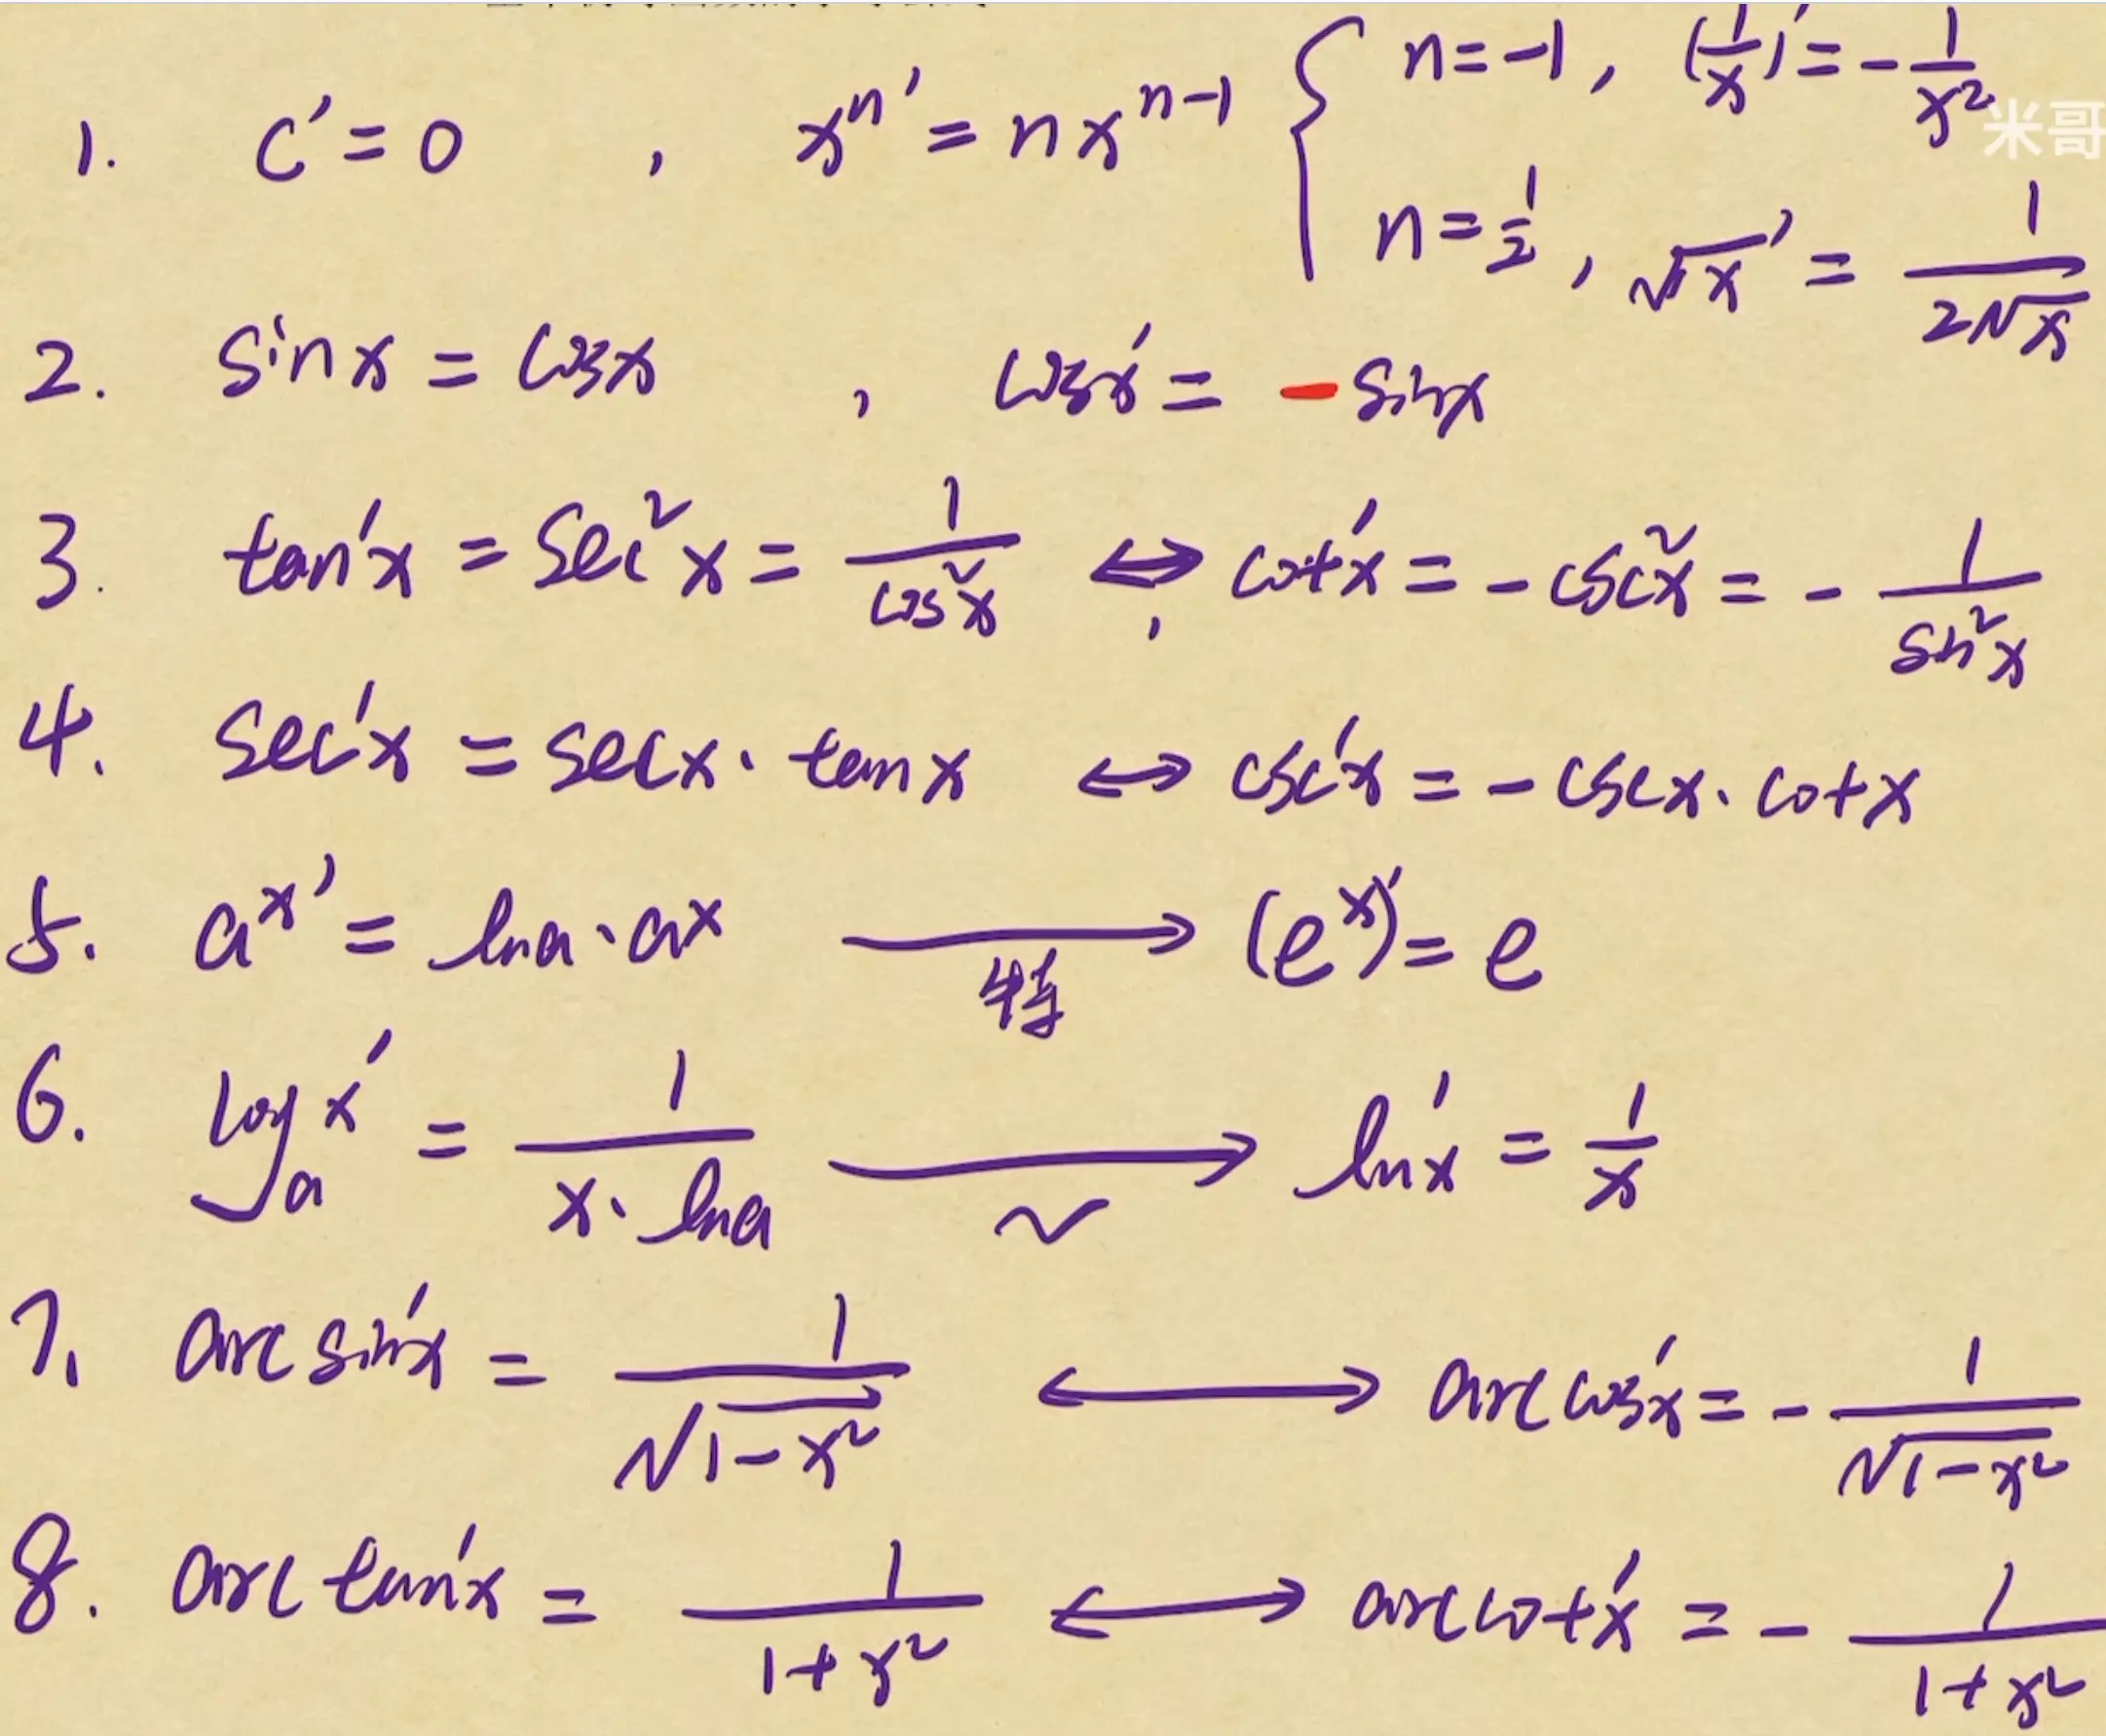 1. C' = 0 , xⁿ' = nxⁿ⁻¹ { n = -1, (1/x)' = -1/x²
米哥
n = 1/2, √x' = 1/(2√x)
2. sinx = cosx , cosx' = -sinx
3. tan'x = sec²x = 1/cos²x ⟷, cot'x = -csc²x = -1/sin²x
4. sec'x = secx · tanx ⟷ csc'x = -cscx · cotx
5. aˣ' = lna · aˣ ⟶ (eˣ)' = e
特
6. logₐx' = 1/(x · lna) ⟶ ln'x = 1/x
7. arcsin'x = 1/√(1-x²) ⟷ arccos'x = -1/√(1-x²)
8. arctan'x = 1/(1+x²) ⟷ arccot'x = -1/(1+x²)